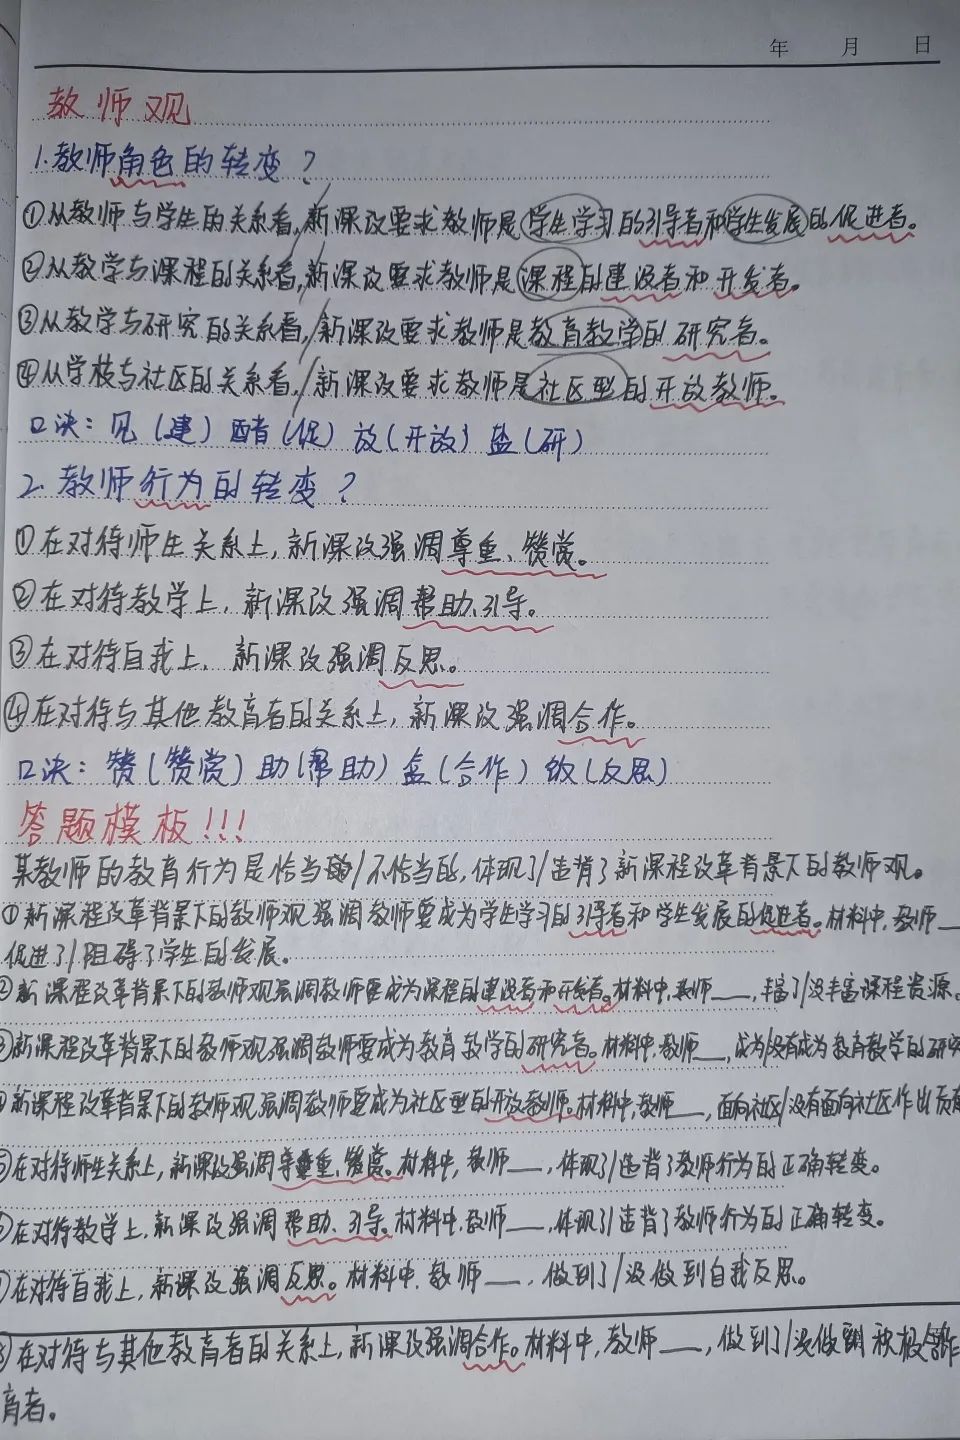 年 月 日
教师观
1.教师角色的转变?
①从教师与学生的关系看,新课改要求教师是学生学习的引导者和学生发展的促进者。
②从教学与课程的关系看,新课改要求教师是课程的建设者和开发者。
③从教学与研究的关系看,新课改要求教师是教育教学的研究者。
④从学校与社区的关系看,新课改要求教师是社区型的开放教师。
口决:见(建)醋(促)放(开放)盐(研)
2.教师行为的转变?
①在对待师生关系上,新课改强调尊重、赞赏。
②在对待教学上,新课改强调帮助、引导。
③在对待自我上,新课改强调反思。
④在对待与其他教育者的关系上,新课改强调合作。
口决:赞(赞赏)助(帮助)盒(合作)饭(反思)
答题模板!!!
某教师的教育行为是恰当的/不恰当的,体现了/违背了新课程改革背景下的教师观。
①新课程改革背景下的教师观强调教师要成为学生学习的引导者和学生发展的促进者。材料中,教师__
促进了/阻碍了学生的发展。
②新课程改革背景下的教师观强调教师要成为课程的建设者和开发者。材料中,教师___,丰富了/没丰富课程资源。
③新课程改革背景下的教师观强调教师要成为教育教学的研究者。材料中,教师___,成为/没有成为教育教学的研究
④新课程改革背景下的教师观强调教师要成为社区型的开放教师。材料中,教师___,面向社区/没有面向社区作出贡献
⑤在对待师生关系上,新课改强调尊重、赞赏。材料中,教师___,体现了/违背了教师行为的正确转变。
⑥在对待教学上,新课改强调帮助、引导。材料中,教师___,体现了/违背了教师行为的正确转变。
⑦在对待自我上,新课改强调反思。材料中,教师___,做到了/没做到自我反思。
⑧在对待与其他教育者的关系上,新课改强调合作。材料中,教师___,做到了/没做到积极合作
育者。